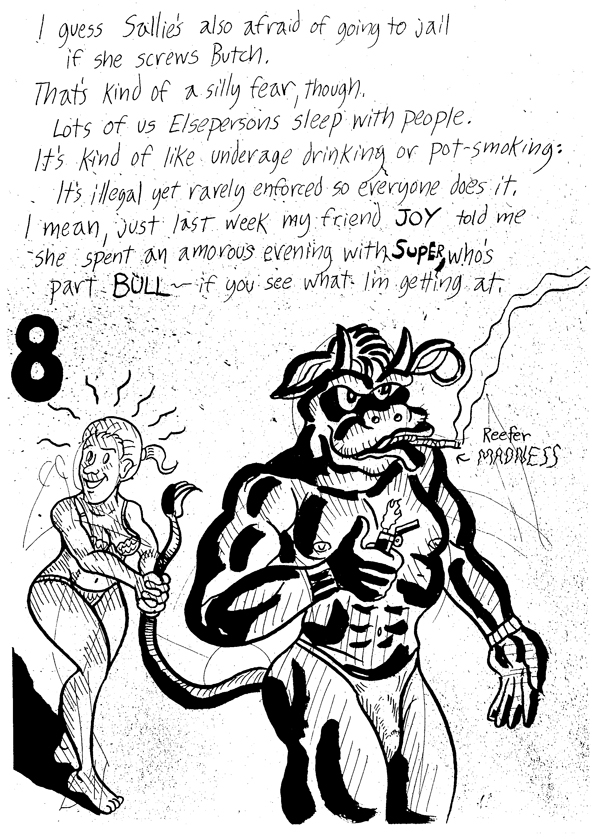 I guess Sallie's also afraid of going to jail
if she screws Butch.
That's kind of a silly fear, though.
Lots of us Elsepersons sleep with people.
It's kind of like underage drinking or pot-smoking:
It's illegal yet rarely enforced so everyone does it.
I mean, just last week my friend JOY told me
she spent an amorous evening with SUPER, who's
part BULL — if you see what I'm getting at.
8
Reefer
MADNESS